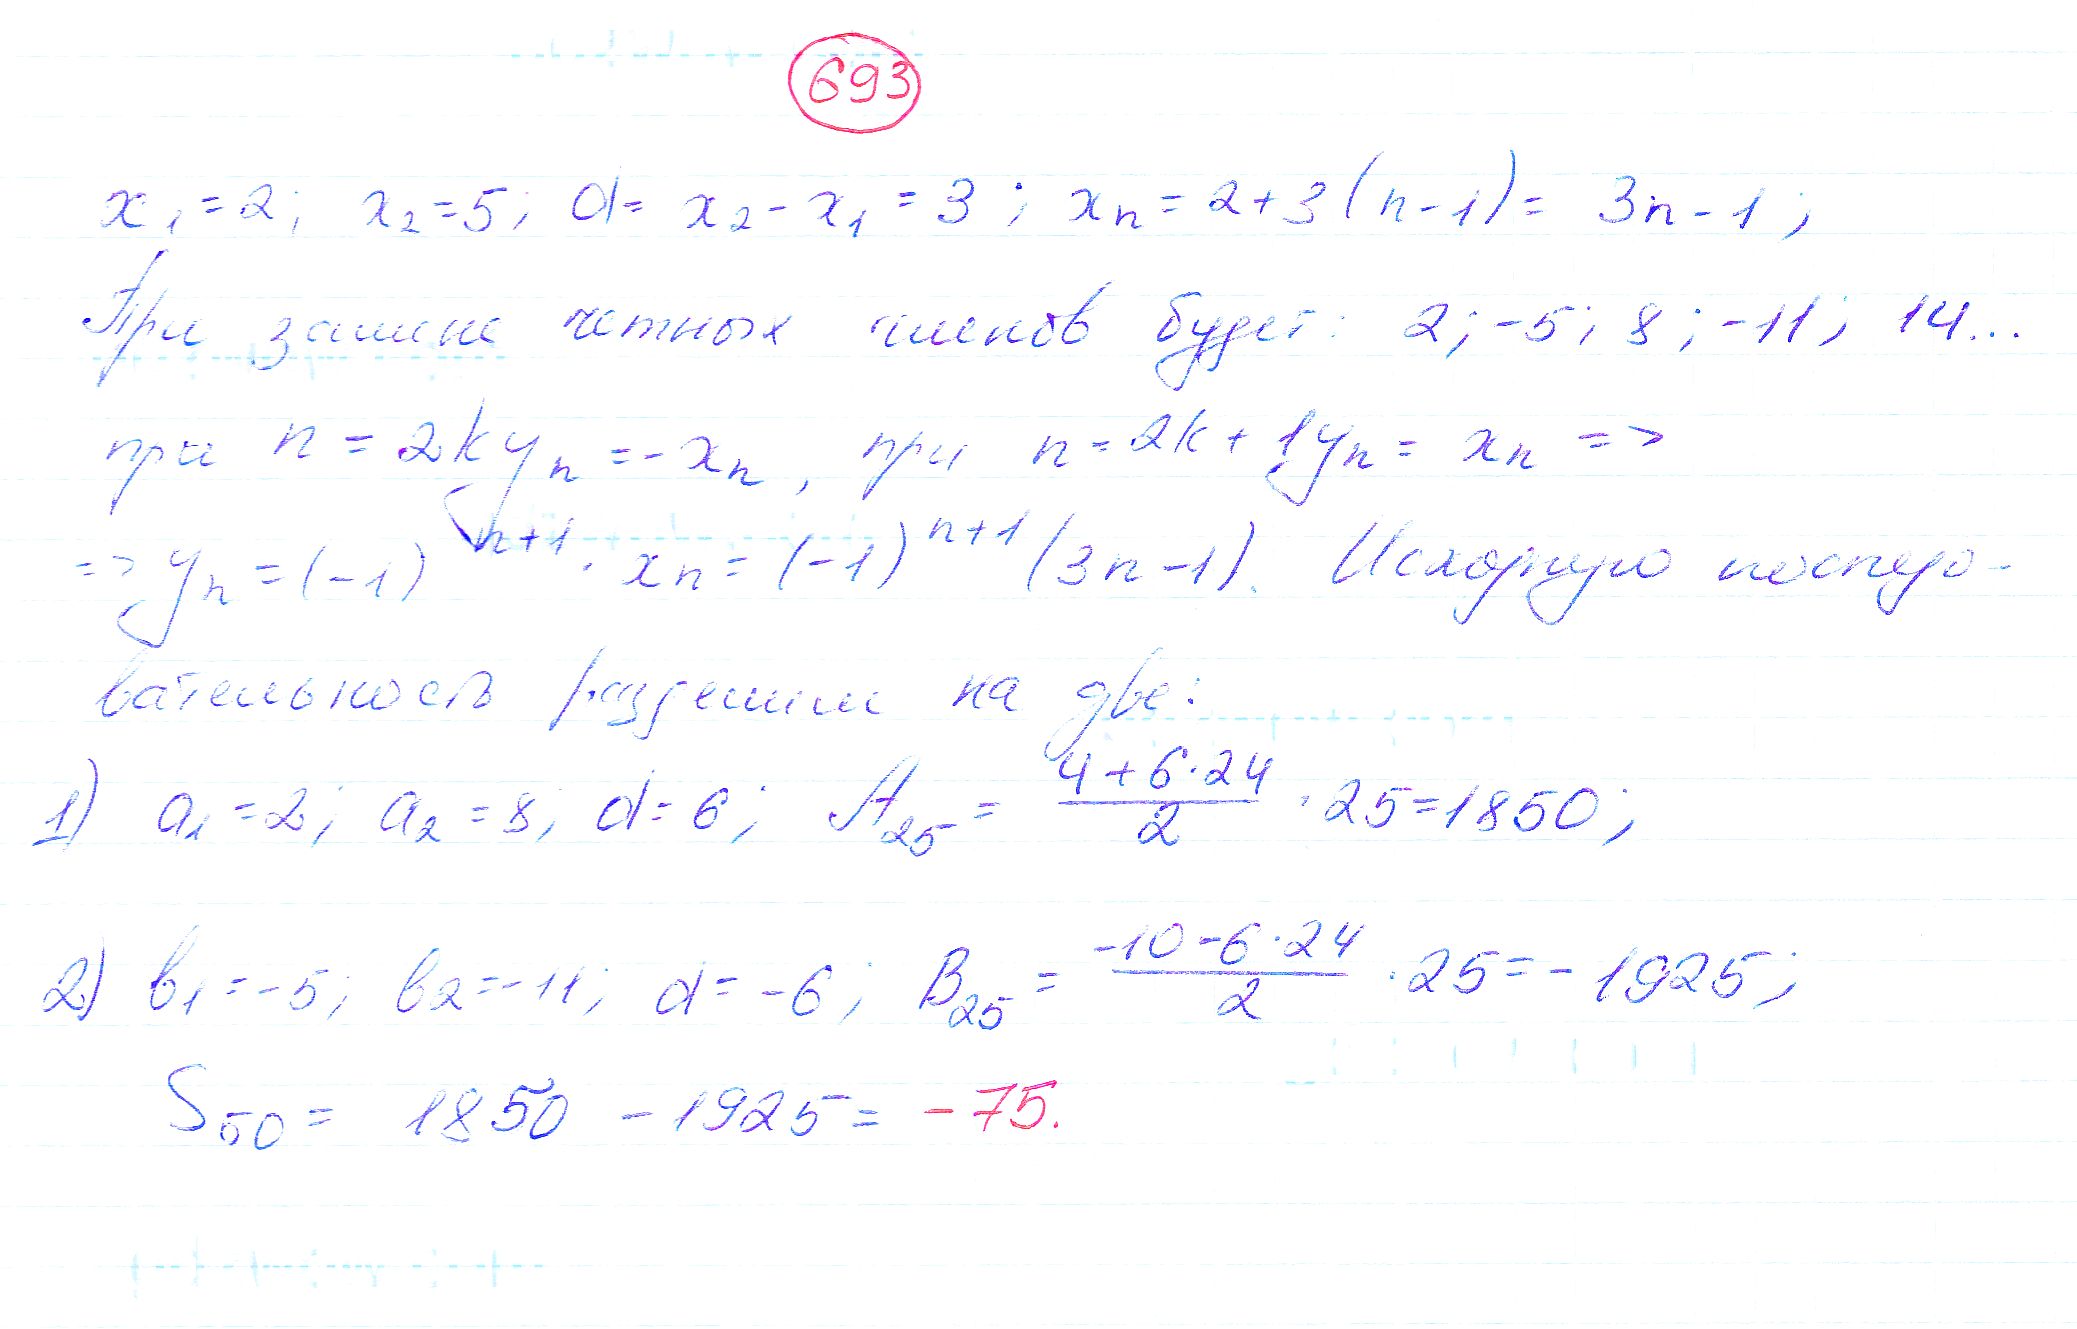 693
x₁=2; x₂=5; d= x₂-x₁ = 3; xₙ= 2+3(n-1)= 3n-1;
При замене четных членов будет: 2; -5; 8; -11; 14...
при n = 2k yₙ = -xₙ, при n = 2k+1 yₙ = xₙ =>
=> yₙ = (-1)ⁿ⁺¹ · xₙ = (-1)ⁿ⁺¹ (3n-1). Исходную последо-
вательность разделим на две:
1) a₁=2; a₂=8; d=6; A₂₅ = (4+6·24)/2 · 25=1850;
2) b₁=-5; b₂=-11; d=-6; B₂₅ = (-10-6·24)/2 · 25=-1925;
S₅₀ = 1850 - 1925 = -75.